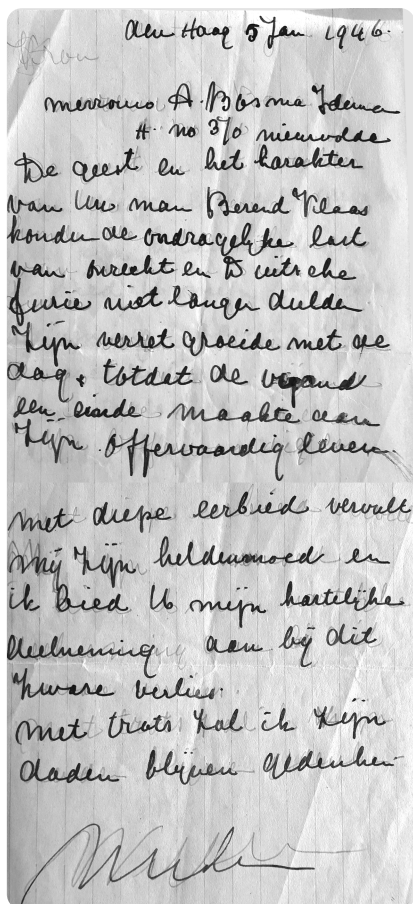 den Haag 5 Jan 1946.
merrouw A. Bosma Idema
A. no 370 nieuwolde
De geest en het karakter
van Uw man Berend Klaas
konden de ondragelijke last
van onrecht en Duitsche
furie niet langer dulden
Zijn verzet groeide met de
dag, totdat de vijand
een einde maakte aan
Zijn offervaardig leven.
met diepe eerbied vervult
mij Zijn heldenmoed en
ik bied U mijn hartelijke
deelneming aan bij dit
zware verlies.
met trots zal ik Zijn
daden blijven gedenken